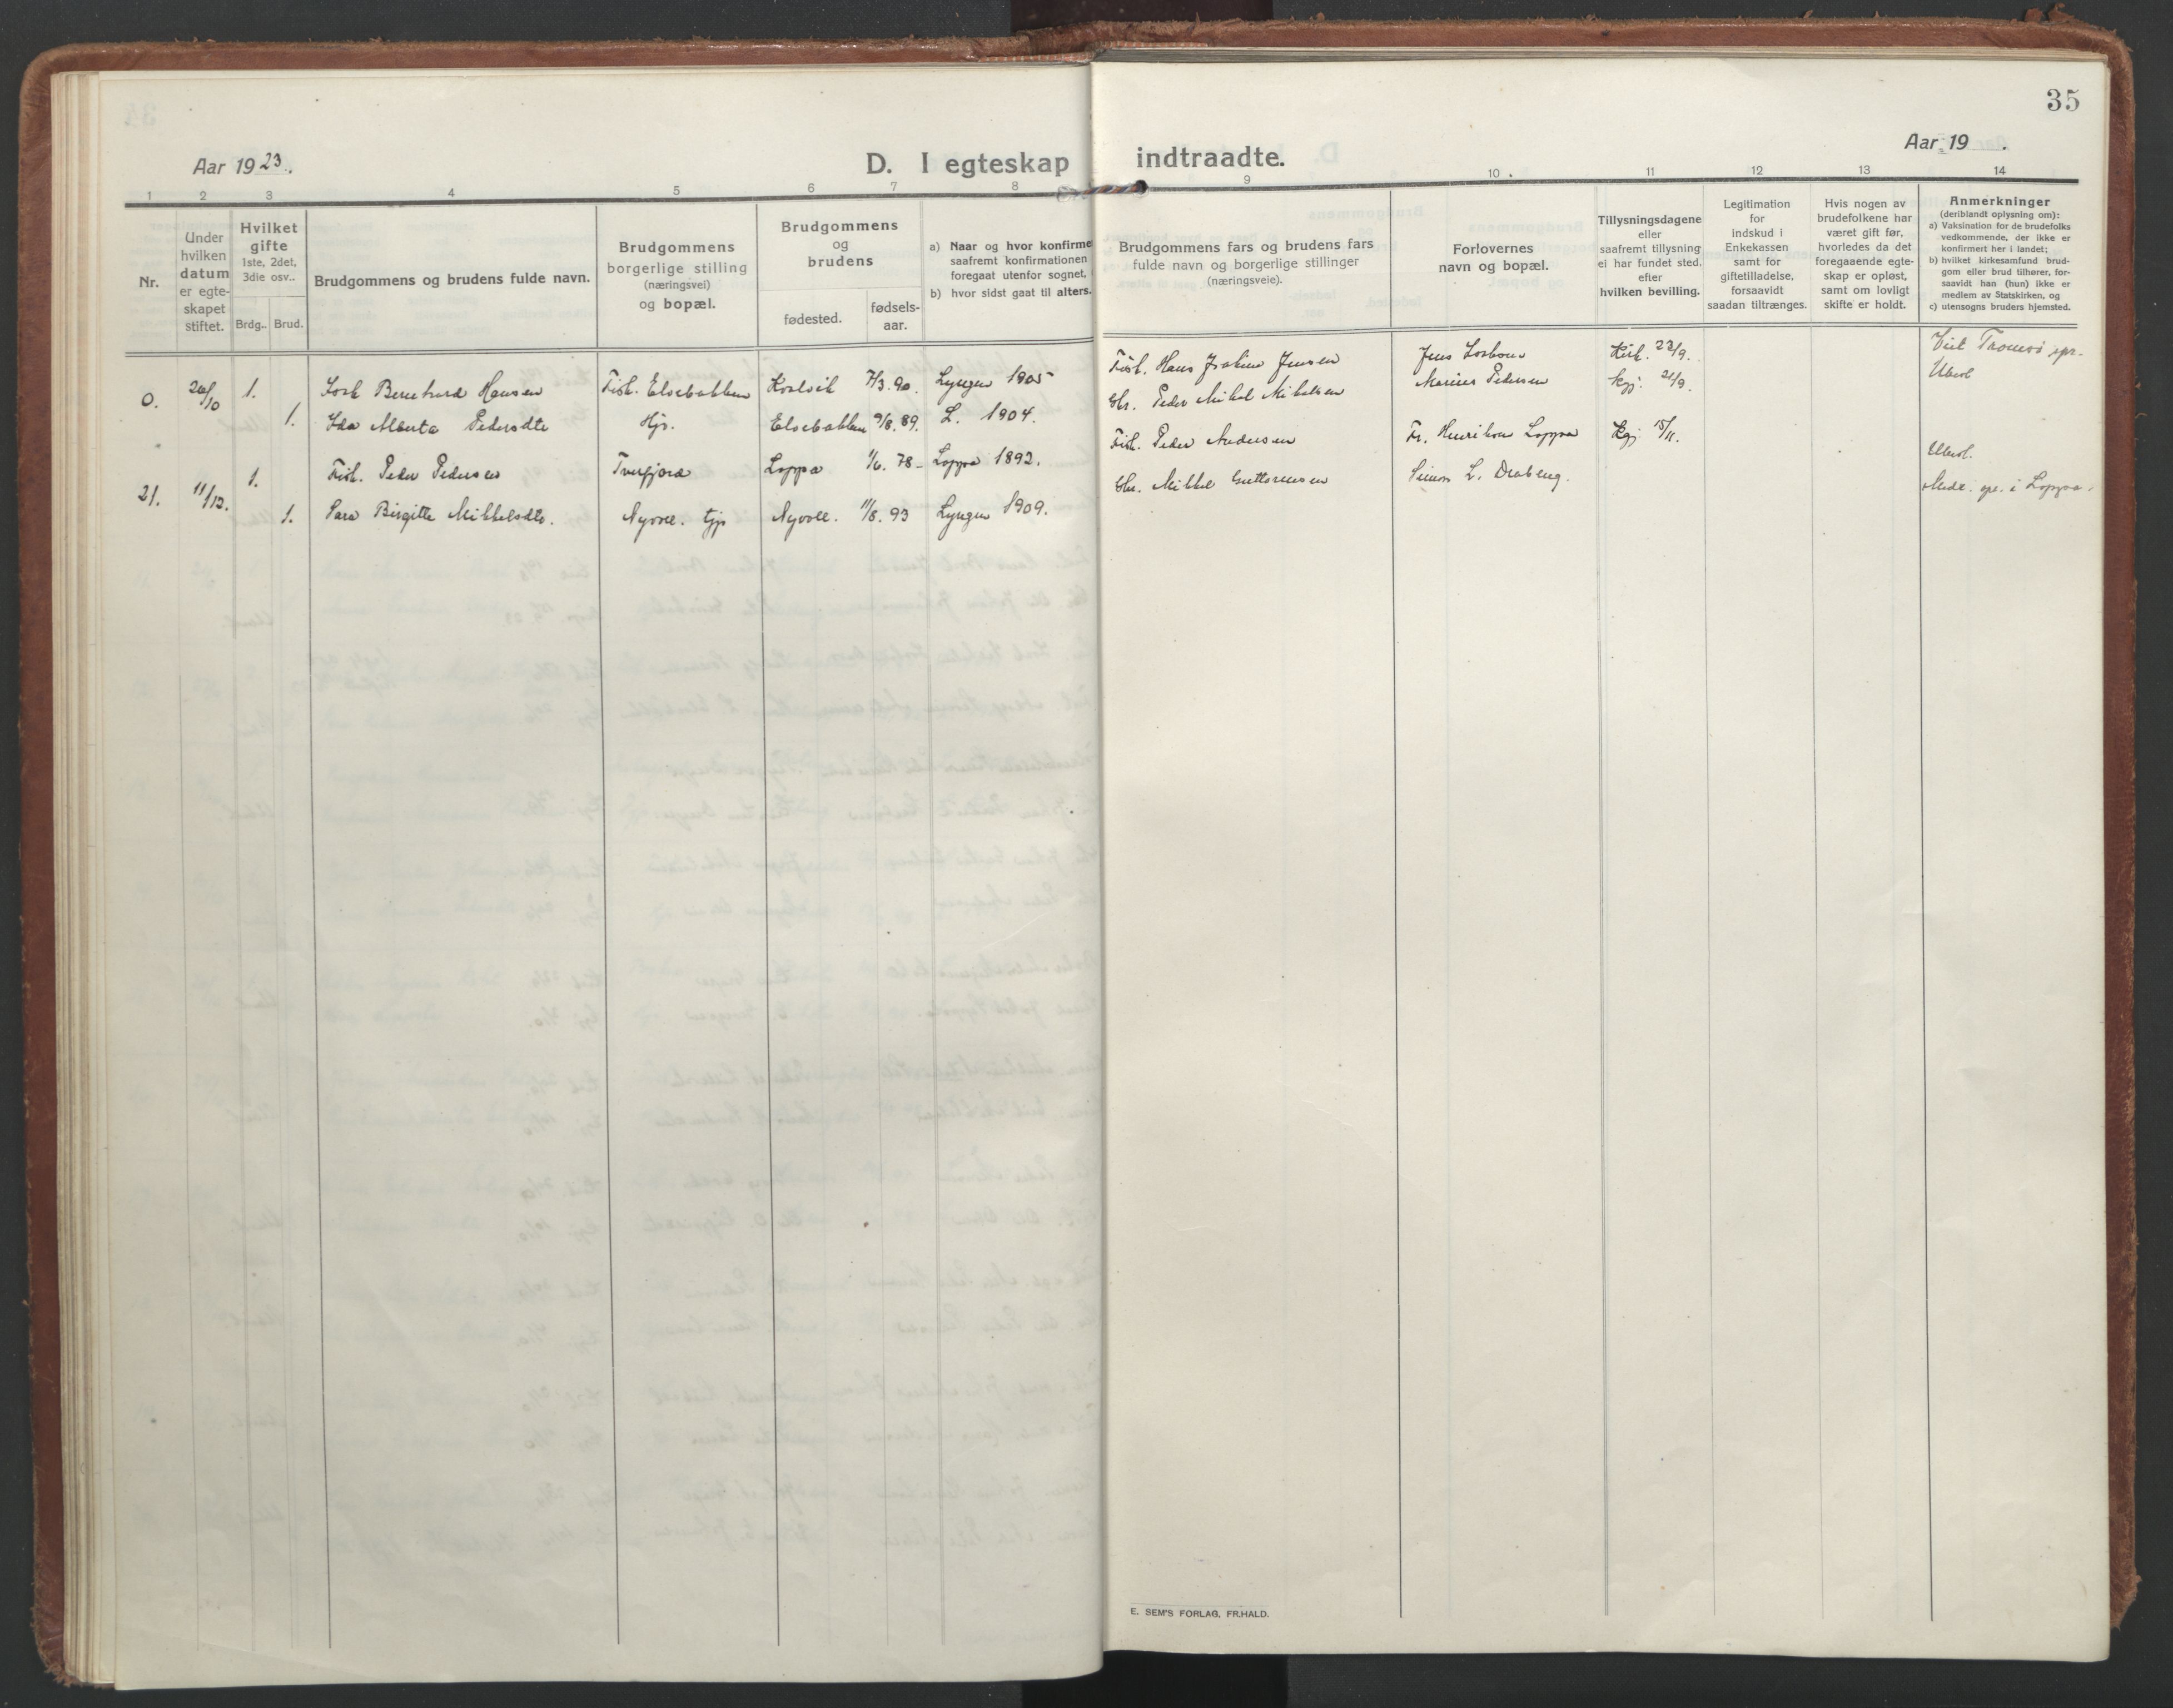 35
Aar 1923.
D. I egteskap indtraadte.
Aar 19 .
1 2 3 4 5 6 7 8 9 10 11 12 13 14
Nr.
Under hvilken datum er egte- skapet stiftet.
Hvilket gifte 1ste, 2det, 3die osv..
Brdg.. Brud.
Brudgommens og brudens fulde navn.
Brudgommens borgerlige stilling (næringsvei) og bopæl.
Brudgommens og brudens
fødested.
fødsels- aar.
a) Naar og hvor konfirme
saafremt konfirmationen
foregaat utenfor sognet,
b) hvor sidst gaat til alters.
Brudgommens fars og brudens fars
fulde navn og borgerlige stillinger
(næringsveie).
Forlovernes
navn og bopæl.
Tillysningsdagene
eller
saafremt tillysning
ei har fundet sted.
efter
hvilken bevilling.
Legitimation
for
indskud i
Enkekassen
samt for
giftetilladelse,
forsaavidt
saadan tiltrænges.
Hvis nogen av
brudefolkene har
været gift før,
hvorledes da det
foregaaende egte-
skap er opløst,
samt om lovligt
skifte er holdt.
Anmerkninger
(deriblandt oplysning om):
a) Vaksination for de brudefolks
vedkommende, der ikke er
konfirmert her i landet;
b) hvilket kirkesamfund brud-
gom eller brud tilhører, for-
saavidt han (hun) ikke er
medlem av Statskirken, og
c) utensogns bruders hjemsted.
0. 26/10 1. Bernhard Hansen Fisk. Elvebakken 7/3. 90. Lyngen 1905 Fisk. Hans Joakim Jensen Jens Kirk. 23/9. Tromsø
1. Ida Alberta Pedersdtr Hjs. Elvebakken 9/8. 89. L. 1904. Gbr. Peder Mikal Mikalsen Marius Pedersen kgj.
21. 11/12. 1. Fisk. Peder Pedersen Tverfjord Loppa 1/6. 78 Loppa 1892. Fisk. Peder Andersen Fr. Henriksen Loppa kgj. 15/11. Ubesl.
1. Sara Birgitte Mikkelsdtr. Nyvoll. tjp Nyvoll. 11/8. 93 Lyngen 1909. Gbr. Mikkel Guttormsen Simon L. i Loppa.
E. SEM'S FORLAG, FR.HALD.